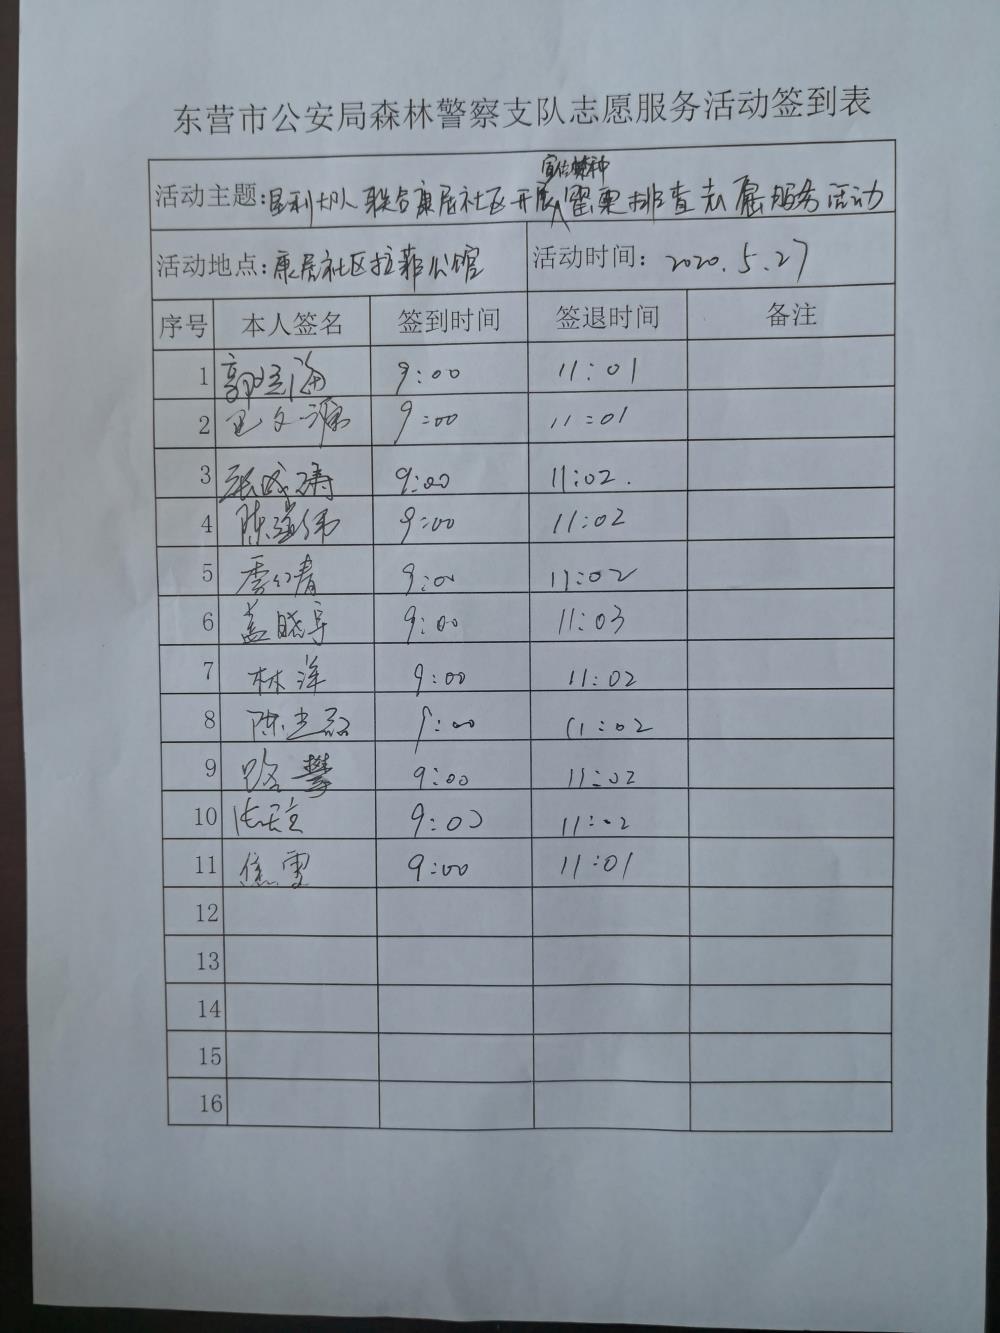 东营市公安局森林警察支队志愿服务活动签到表
宣传禁种
活动主题：垦利大队联合康居社区开展罂粟排查志愿服务活动
活动地点：康居社区拉菲公馆 活动时间：2020.5.27
序号 本人签名 签到时间 签退时间 备注
1 郭 海 9:00 11:01
2 文源 9:00 11:01
3 张成涛 9:00 11:02.
4 陈 伟 9:00 11:02
5 李 青 9:00 11:02
6 盖晓宇 9:00 11:03
7 林洋 9:00 11:02
8 陈 9:00 11:02
9 路攀 9:00 11:02
10 9:00 11:02
11 焦雯 9:00 11:01
12
13
14
15
16